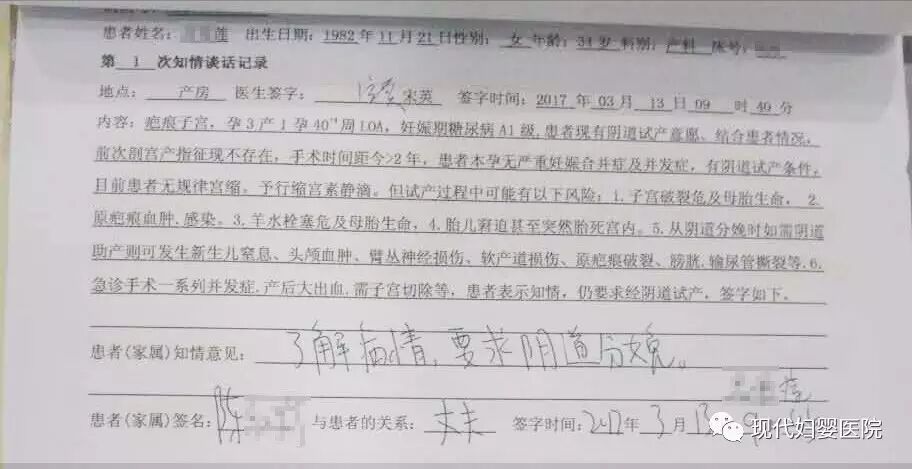 患者姓名: 莲 出生日期: 1982 年 11 月 21 日性别: 女 年龄: 34 岁 科别: 产科 床号:
第 1 次知情谈话记录
地点: 产房 医生签字: 宋英 签字时间: 2017 年 03 月 13 日 09 时 40 分
内容: 疤痕子宫,孕 3 产 1 孕 40⁺¹周 LOA, 妊娠期糖尿病 A1 级,患者现有阴道试产意愿、结合患者情况,
前次剖宫产指征现不存在,手术时间距今>2 年,患者本孕无严重妊娠合并症及并发症,有阴道试产条件,
目前患者无规律宫缩。予行缩宫素静滴。但试产过程中可能有以下风险: 1.子宫破裂危及母胎生命, 2.
原疤痕血肿.感染。3.羊水栓塞危及母胎生命,4.胎儿窘迫甚至突然胎死宫内。5.从阴道分娩时如需阴道
助产则可发生新生儿窒息、头颅血肿、臂丛神经损伤、软产道损伤、原疤痕破裂、膀胱.输尿管撕裂等.6.
急诊手术一系列并发症.产后大出血.需子宫切除等,患者表示知情,仍要求经阴道试产,签字如下。
患者(家属)知情意见: 了解病情,要求阴道分娩。
患者(家属)签名: 陈 与患者的关系: 丈夫 签字时间: 2017年 3 月 13
现代妇婴医院